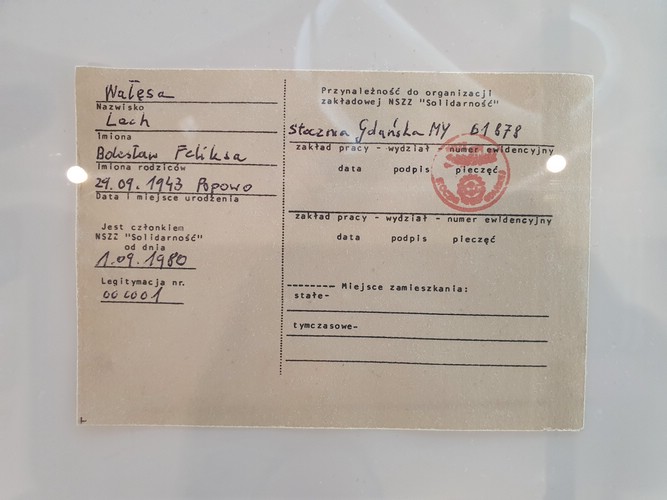 Wałęsa
Nazwisko
Lech
Imiona
Bolesław Feliksa
Imiona rodziców
29.09.1943 Popowo
Data i miejsce urodzenia
Jest członkiem
NSZZ "Solidarność"
od dnia
1.09.1980
Legitymacja nr.
000001
Przynależność do organizacji
zakładowej NSZZ "Solidarność"
Stocznia Gdańska MY 61878
zakład pracy - wydział - numer ewidencyjny
data podpis pieczęć
zakład pracy - wydział - numer ewidencyjny
data podpis pieczęć
-------- Miejsce zamieszkania:
stałe-
tymczasowe-